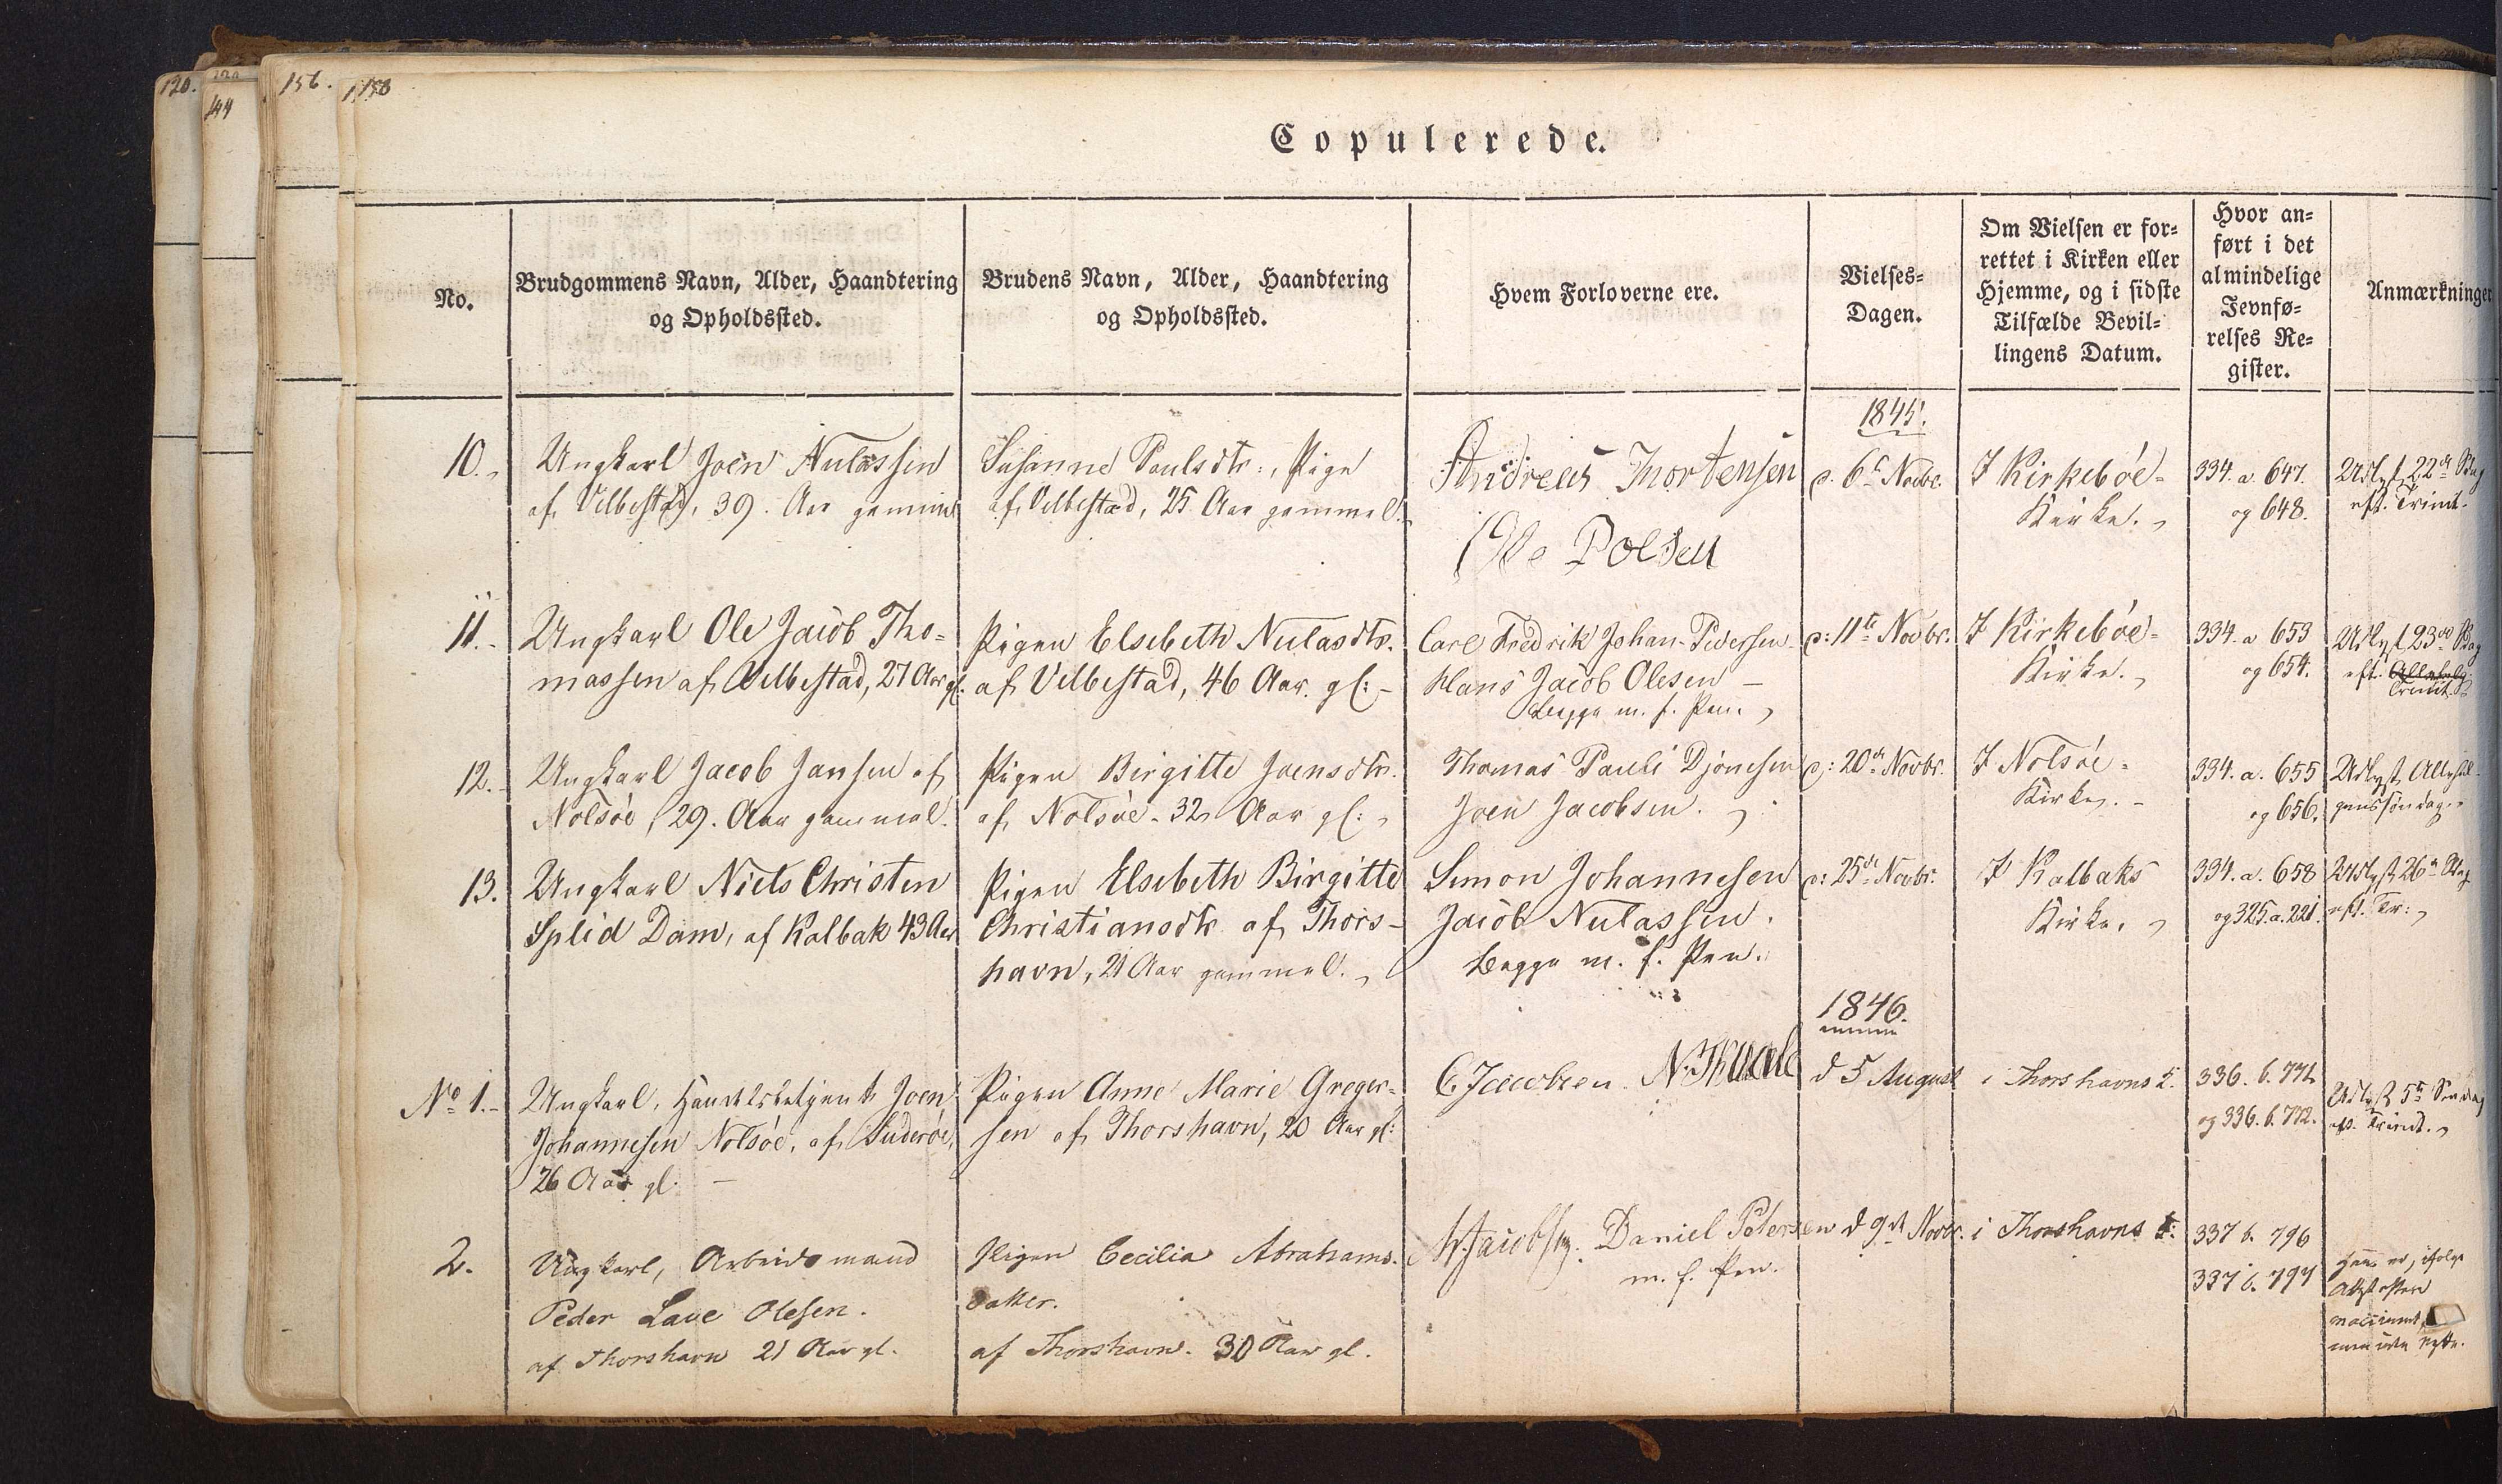 120.
144
156.
158
Copulerede.
No.
Brudgommens Navn, Alder, Haandtering
og Opholdssted.
Brudens Navn, Alder, Haandtering
og Opholdssted.
Hvem Forloverne ere.
Vielses-
Dagen.
Om Vielsen er for-
rettet i Kirken eller
Hjemme, og i sidste
Tilfælde Bevil-
lingens Datum.
Hvor an-
ført i det
almindelige
Jevnfø-
relses Re-
gister.
Anmærkninger
1845.
10.
Ungkarl Joen Nulassen
af Velbestad, 39. Aar gammel
Susanne Poulsdtr., Pige
af Velbestad, 25 Aar gammel.
Andreas Mortensen
Ole Polsen
d. 6te Novbr.
I Kirkebøe-
Kirke.
334. a. 647.
og 648.
Udlyst 22de Søndag
eft. Trinit.
11.
Ungkarl Ole Jacob Tho-
massen af Velbestad, 27 Aar gl:
Pigen Elsebeth Nulasdtr.
af Velbestad, 46 Aar. gl: -
Carl Fredrik Johan Pedersen
Hans Jacob Olesen -
begge m. f. Pen.
d: 11te Novbr.
I Kirkebøe-
Kirke.
334. a 653
og 654.
Udlyst 23de
eft.
Trinit.
12.
Ungkarl Jacob Jansen af
Nolsöe, 29. Aar gammel.
Pigen Birgitte Joensdtr.
af Nolsöe. 32 Aar gl:
Thomas Pauli Djonesen
Joen Jacobsen.
d: 20de Novbr.
I Nolsöe-
Kirke. -
334. a. 655
og 656.
Udlyst Allehel-
genssöndag.
13.
Ungkarl Niels Christen
Splid Dam, af Kalbak 43 Aar
Pigen Elsebeth Birgitte
Christiansdtr. af Thors-
havn, 21 Aar gammel.
Simon Johannesen
Jacob Nulassen.
begge m. f. Pen.
d: 25de Novbr.
I Kalbaks
Kirke.
334. a. 658
og 325. a. 221.
Udlyst 26de
eft. Tr:
1846.
No 1. -
Ungkarl, Handelsbetjent Joen
Johannesen Nolsöe, af Suderöe,
26 Aar gl. -
Pigen Anne Marie Greger-
sen af Thorshavn, 20 Aar gl:
C. Jacobsen
d 5 August
i Thorshavns K.
336. b. 771
og 336. b. 772.
Udlyst 5te Søndag
eft. Trinit.
2.
Ungkarl, Arbeidsmand
Peder Laue Olesen.
af Thorshavn 21 Aar gl.
Pigen Cecilia Abrahams-
datter.
af Thorshavn. 30 Aar gl.
Daniel Petersen
m. f. Pen.
d 9de Novbr.
i Thorshavns K:
337 b. 796
337 b. 797
ifølge